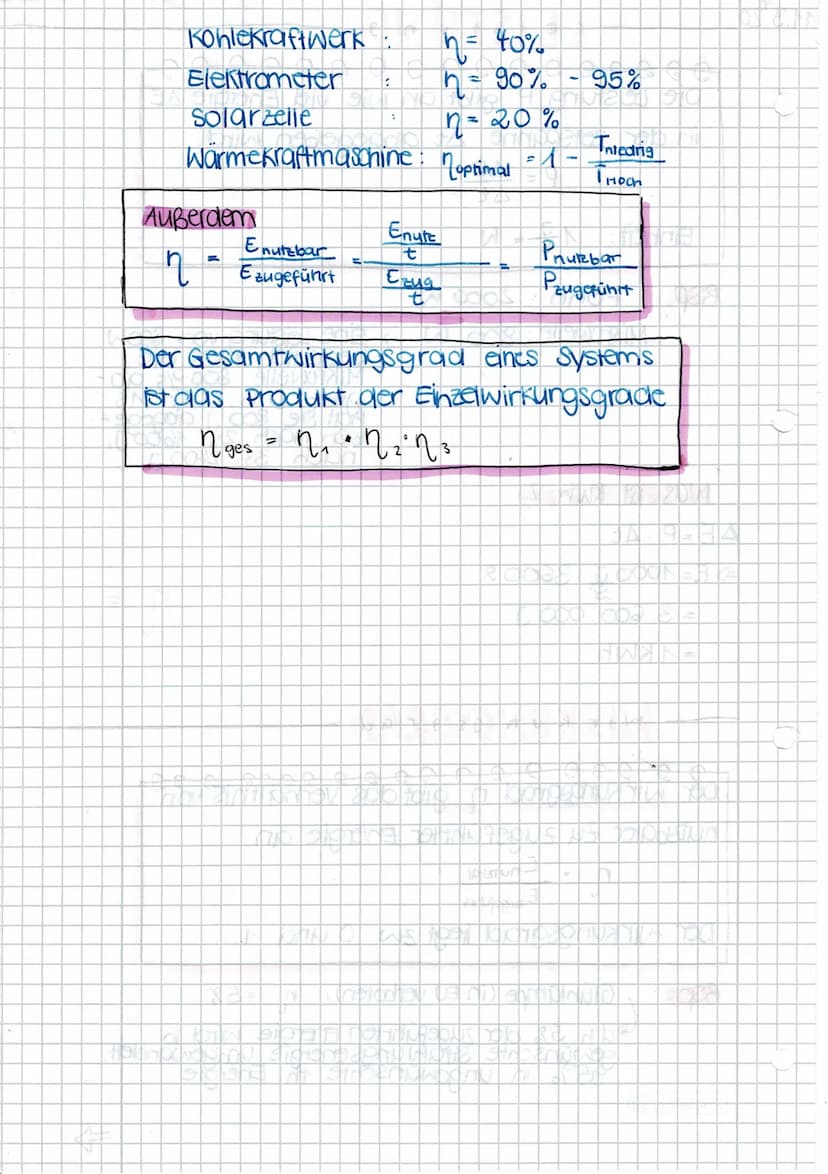 Kohlekraftwerk : η = 40%
Elektrometer : η = 90% - 95%
Solarzelle : η = 20 %
Wärmekraftmaschine : η optimal = 1 - T niedrig / T Hoch
Außerdem
η = E nutzbar / E zugeführt = (E nutz / t) / (E zug / t) = P nutzbar / P zugeführt
Der Gesamtwirkungsgrad eines Systems
ist das Produkt der Einzelwirkungsgrade
η ges = η 1 · η 2 · η 3